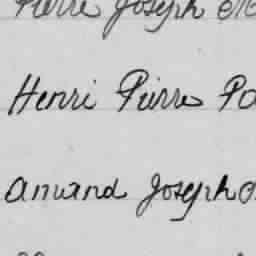 Pierre Joseph
Henri Pierre Po
Amand Joseph